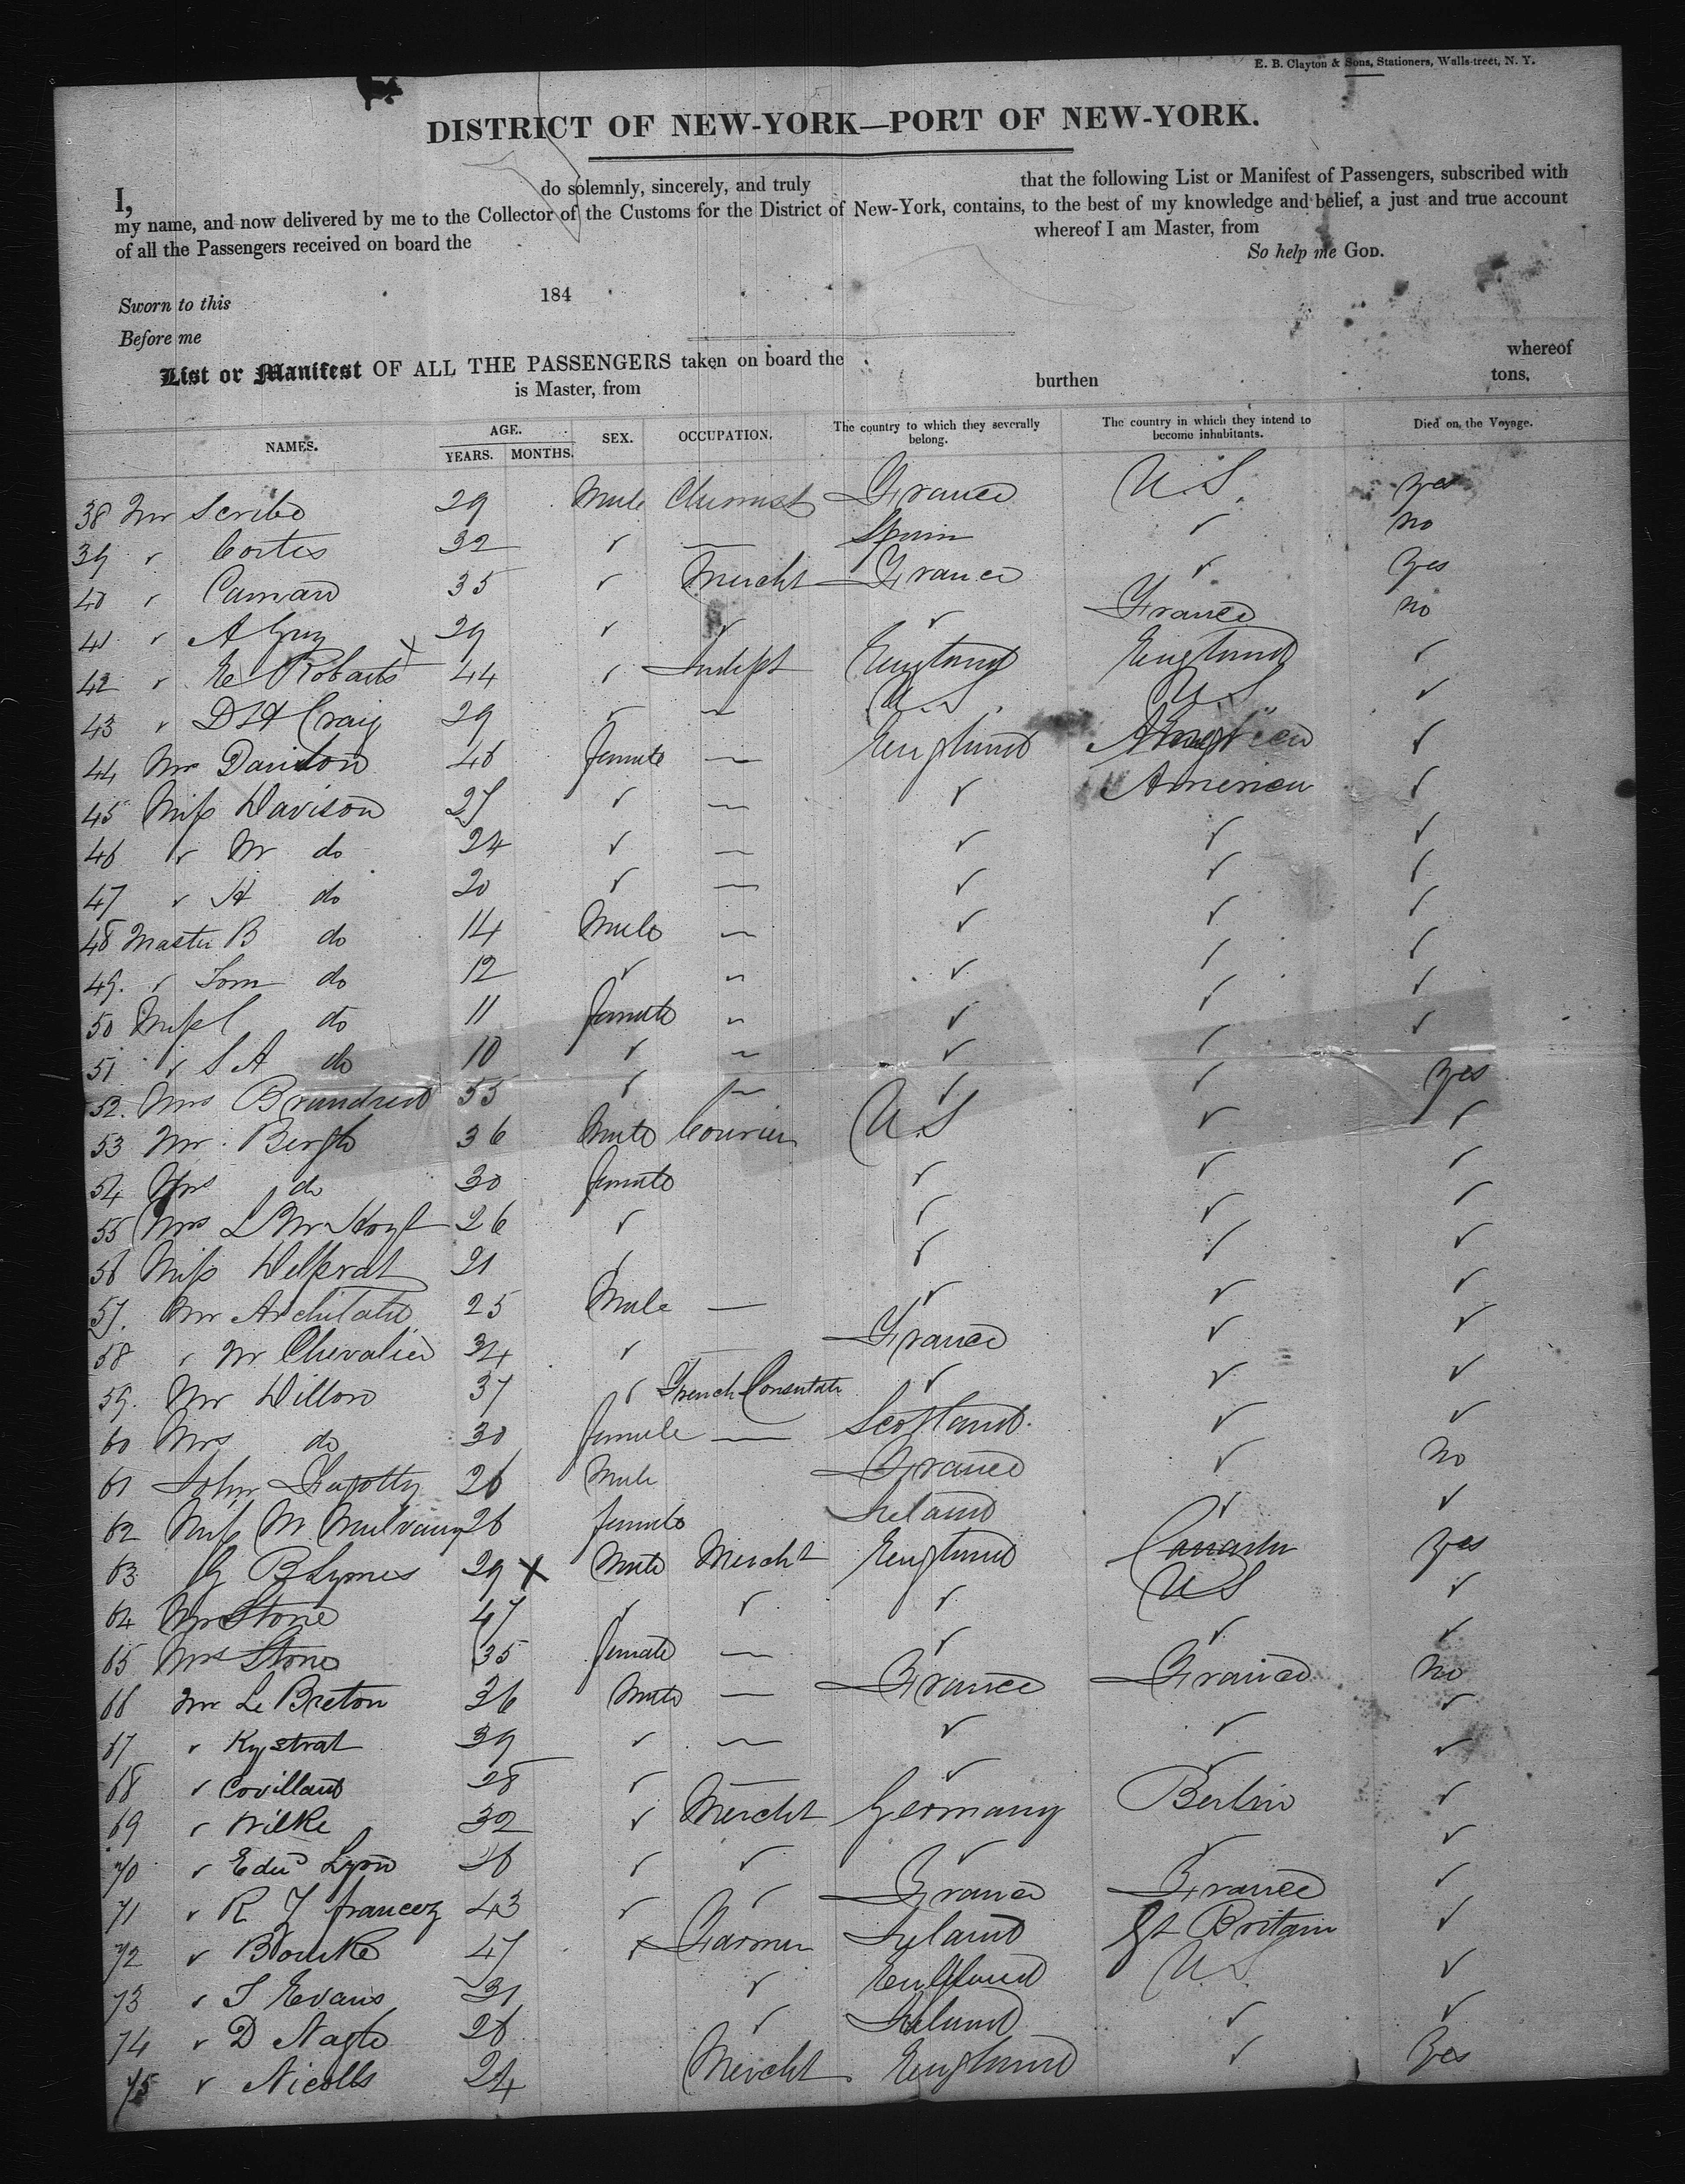 E. B. Clayton & Sons, Stationers, Walls-treet, N. Y.
DISTRICT OF NEW-YORK—PORT OF NEW-YORK.
I, do solemnly, sincerely, and truly that the following List or Manifest of Passengers, subscribed with
my name, and now delivered by me to the Collector of the Customs for the District of New-York, contains, to the best of my knowledge and belief, a just and true account
of all the Passengers received on board the whereof I am Master, from
So help me GOD.
Sworn to this 184
Before me
List or Manifest OF ALL THE PASSENGERS taken on board the whereof
is Master, from burthen tons.
NAMES. AGE. YEARS. MONTHS. SEX. OCCUPATION. The country to which they severally belong. The country in which they intend to become inhabitants. Died on the Voyage.
38 Mr Scribe 29 Male Chemist France U.S. yes
39 " Cortes 32 " — Spain " no
40 " Caman 35 " Mercht France " yes
41 " A Guy 29 " " " France no
42 " E Robarts 44 " Indept England England "
43 " D H Craig 29 " — U.S. U.S. "
44 Mrs Davison 46 female — England "
45 Miss Davison 27 " — " America "
46 " M do 24 " — " " "
47 " H do 20 " — " " "
48 Master B do 14 Male — " " "
49. " Tom do 12 " " " " "
50 Miss C do 11 female " " " "
51 " S A do 10 " " " " "
52. Mrs Brandred 55 " " " " yes
53 Mr. Bergh 36 Male Courier U.S " "
54 Mrs do 30 female " " "
55 Mrs L M Hoyt 26 " " " "
56 Miss Delprat 21 " " " "
57. Mr 25 Male — " " "
58 " Mr Chevalier 34 " — France " "
59. Mr Dillon 37 " French Consulate " " "
60 Mrs do 30 female — Scotland. " "
61 John 26 Male France " no
62 Miss M Mulvany 26 female Ireland " "
63 G B Symes 29 x Male Mercht England Canada yes
64 Mr Stone 47 " " " U S "
65 Mrs Stone 35 female — " " "
66 Mr Le Breton 36 Male — France France no
67 " Kystrat 39 " — " " "
68 " Covillaud 28 " — " " "
69 " Wilke 32 " Mercht Germany Berlin "
70 " Edwd Lyon 26 " " " " "
71 " R J francoz 43 " " France France "
72 " Bourke 47 " Farmer Ireland Gt Britain "
73 " T Evans 31 " England U.S. "
74 " D Nagle 26 " Ireland " "
75 " Nicolls 24 Mercht England " Yes